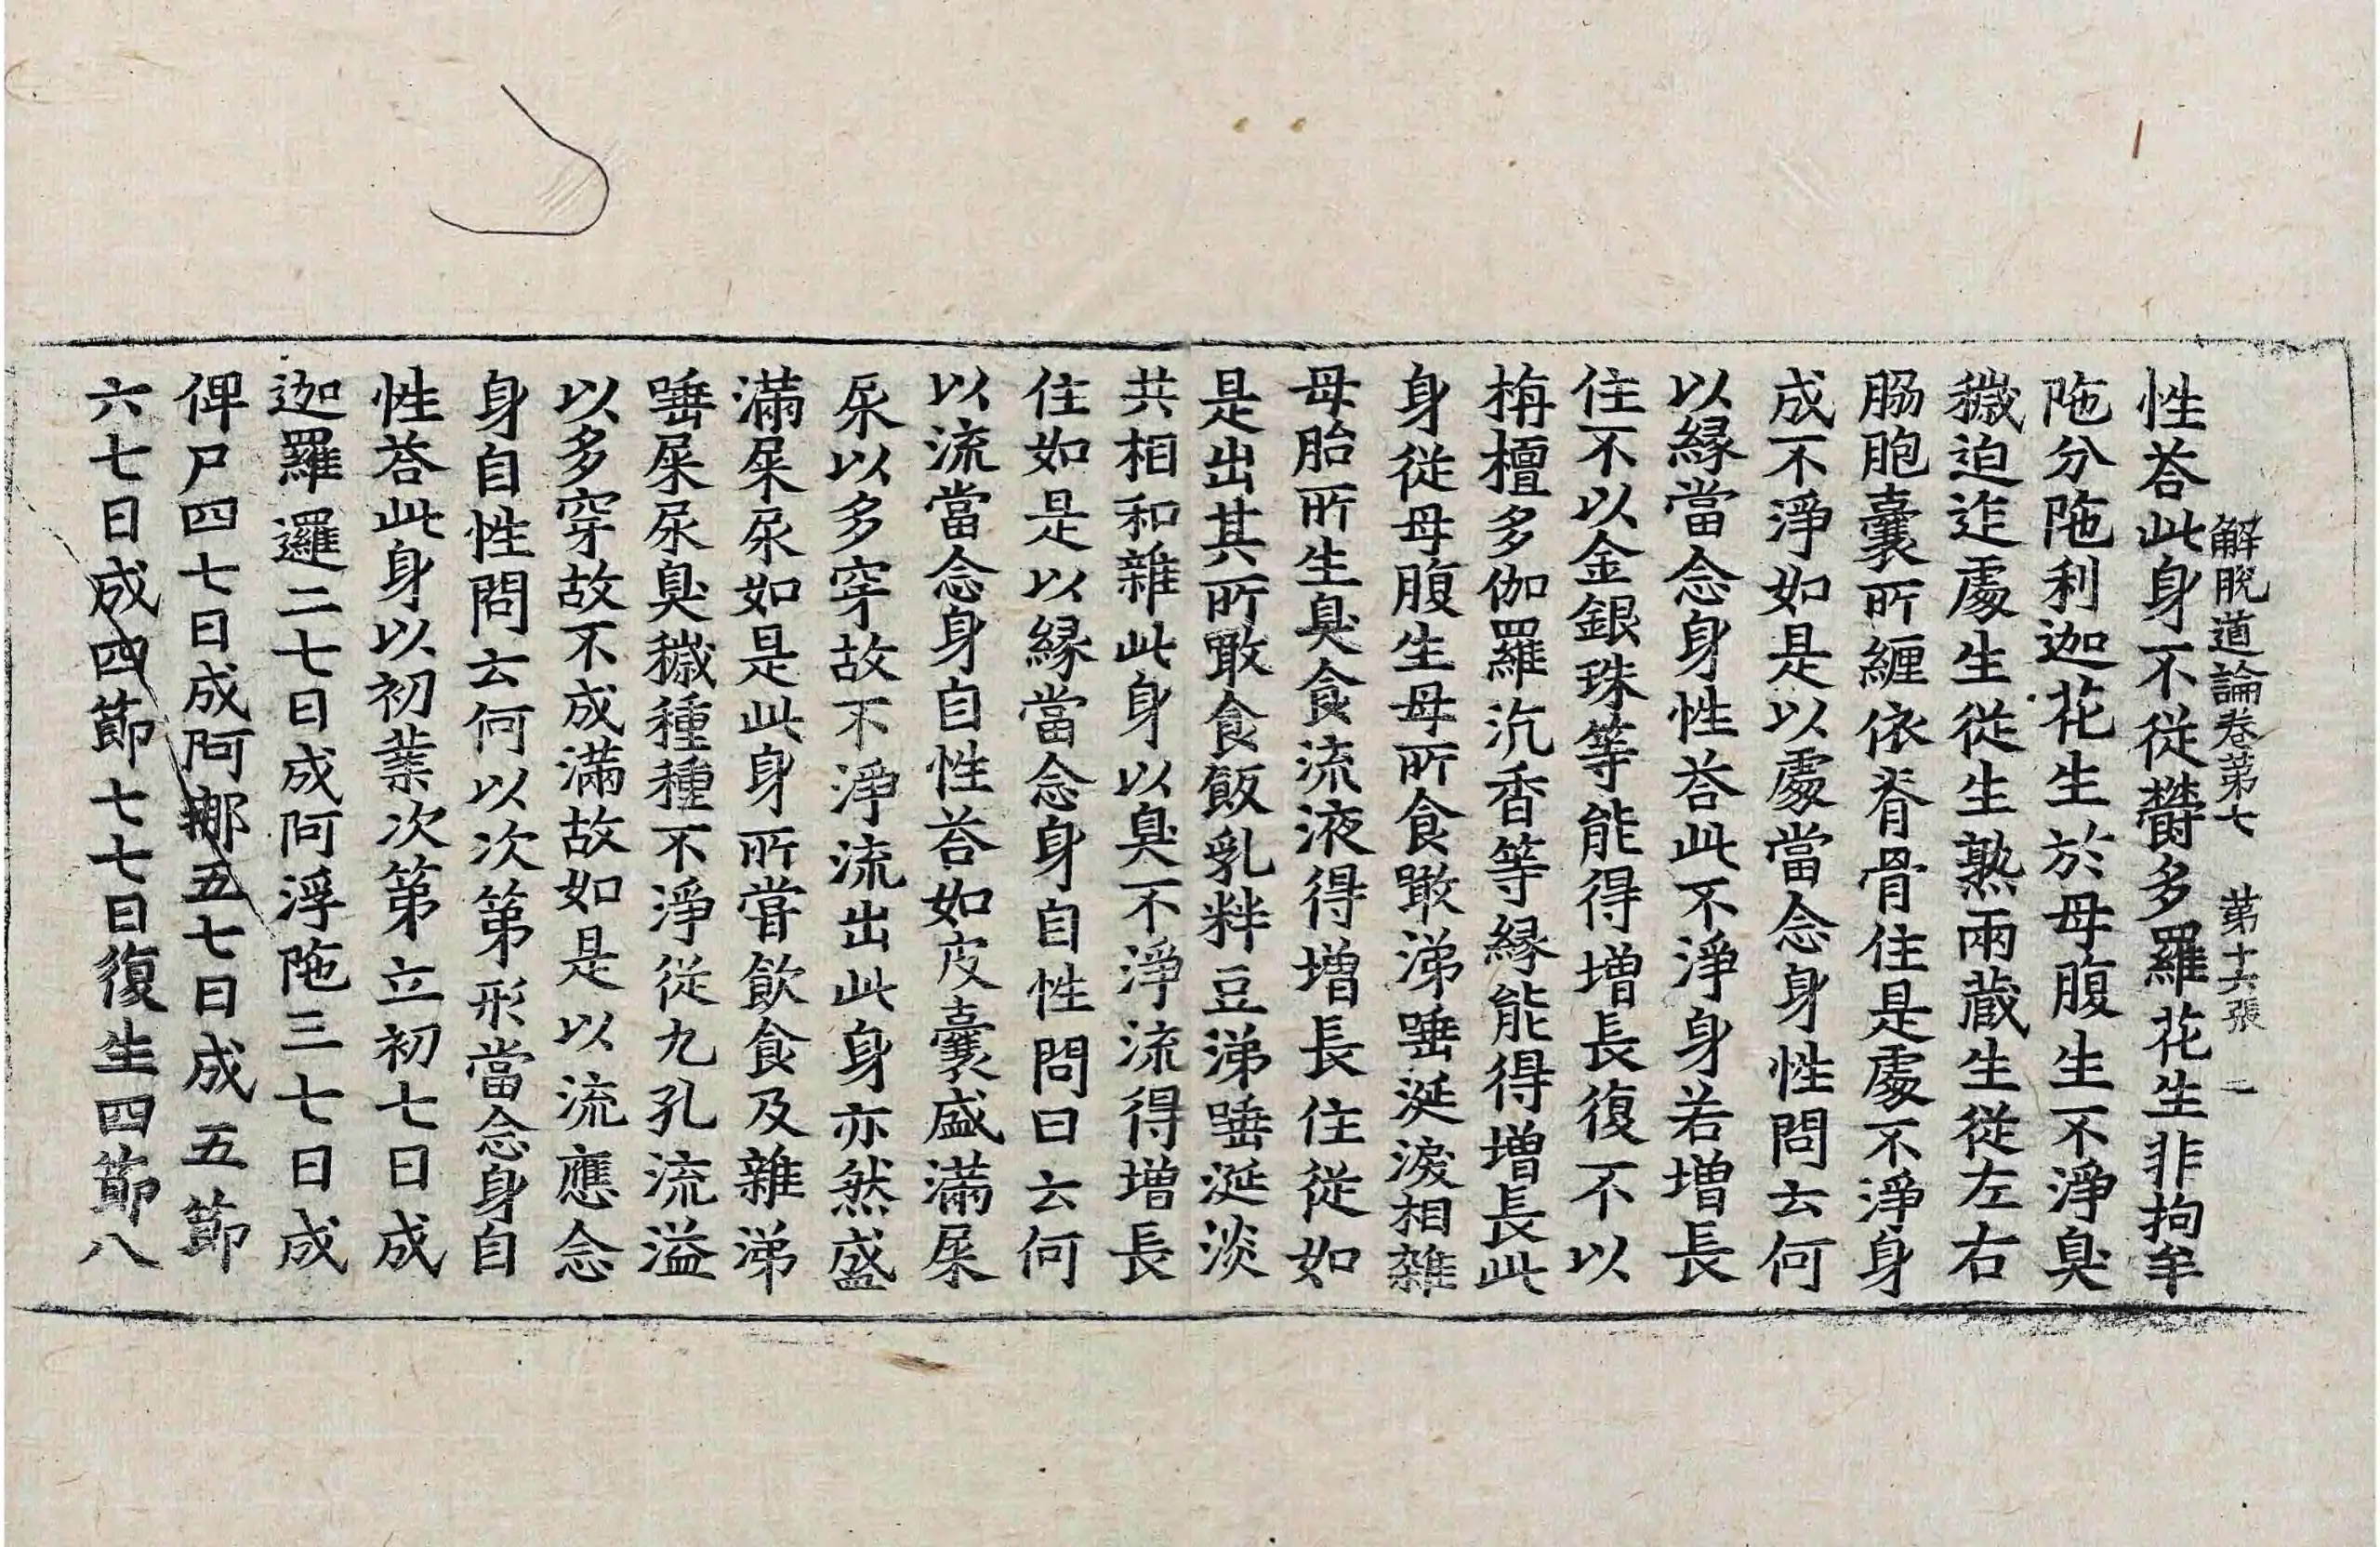 解脫道論卷第七　第十六張　一
性荅此身不從欝多羅花生非拘牟
陁分陁利迦花生於母腹生不淨臭
穢迫迮處生從生熟兩藏生從左右
肠胞囊所纏依脊骨住是處不淨身
成不淨如是以處當念身性問云何
以緣當念身性荅此不淨身若增長
住不以金銀珠等能得增長復不以
栴檀多伽羅沉香等緣能得增長此
身從母腹生母所食噉涕唾涎淚相雜
母胎所生臭食流液得增長住從如
是出其所噉食飯乳粖豆涕唾涎淡
共相和雜此身以臭不淨流得增長
住如是以緣當念身自性問曰云何
以流當念身自性荅如皮囊盛滿屎
尿以多穿故不淨流出此身亦然盛
滿屎尿如是此身所甞飲食及雜涕
唾屎尿臭穢種種不淨從九孔流溢
以多穿故不成滿故如是以流應念
身自性問云何以次第形當念身自
性荅此身以初業次第立初七日成
迦羅邏二七日成阿浮陁三七日成
俾尸四七日成阿㖠五七日成五節
六七日成四節七七日復生四節八